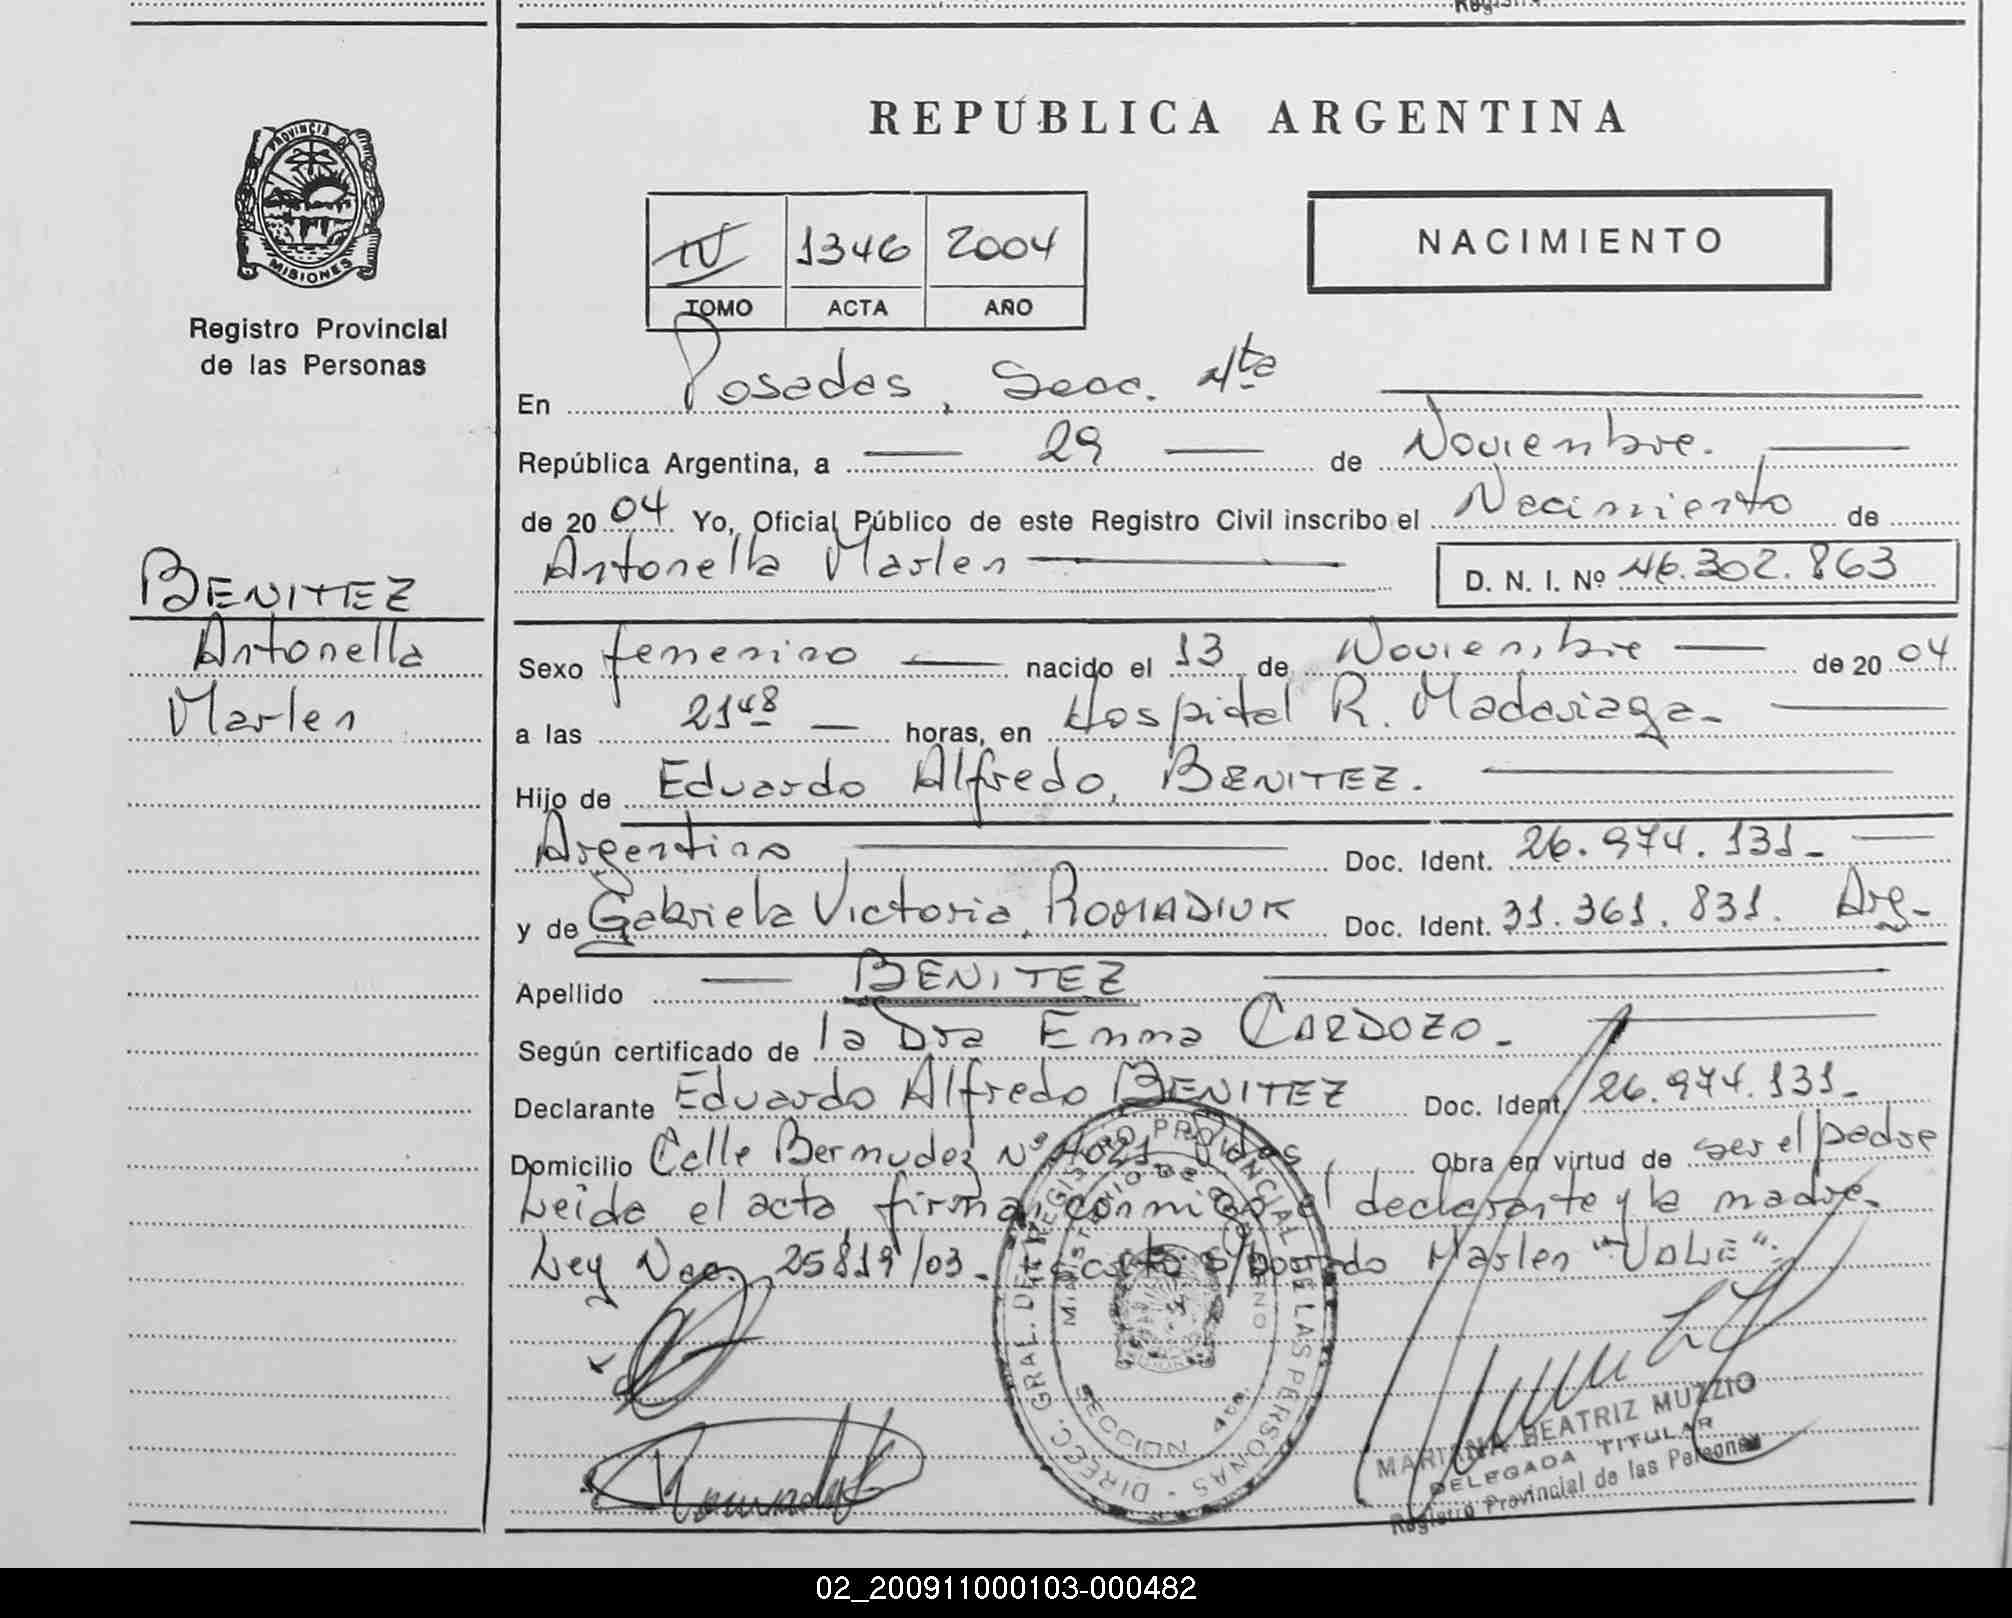 REPÚBLICA ARGENTINA
PROVINCIA DE
MISIONES
Registro Provincial
de las Personas
IV 1346 2004
TOMO ACTA AÑO
NACIMIENTO
En Posadas, Secc. 4ta
República Argentina, a 29 de Noviembre.
de 20 04 Yo, Oficial Público de este Registro Civil inscribo el Nacimiento de
Antonella Marlen D. N. I. Nº 46.302.863
BENITEZ
Antonella
Marlen
Sexo femenino nacido el 13 de Noviembre de 20 04
a las 21 48 horas, en Hospital R. Madariaga-
Hijo de Eduardo Alfredo, BENITEZ.
Argentino Doc. Ident. 26.974.131-
y de Gabriela Victoria, ROMADIUK Doc. Ident. 31.361.831. Arg-
Apellido BENITEZ
Según certificado de la Dra Emma CARDOZO-
Declarante Eduardo Alfredo BENITEZ Doc. Ident. 26.974.131-
Domicilio Calle Bermudez Nº 4021 Pdas, Obra en virtud de ser el padre
Leida el acta, firman conmigo el declarante y la madre-
Ley Nac. 25819/03- s/borrado Marlen "VALE":
DIREC. GRAL. DEL REGISTRO PROVINCIAL DE LAS PERSONAS -
MINISTERIO DE GOBIERNO
SECCION 4ta.
MARIANA BEATRIZ MUZZIO
DELEGADA TITULAR
Registro Provincial de las Personas
02_200911000103-000482